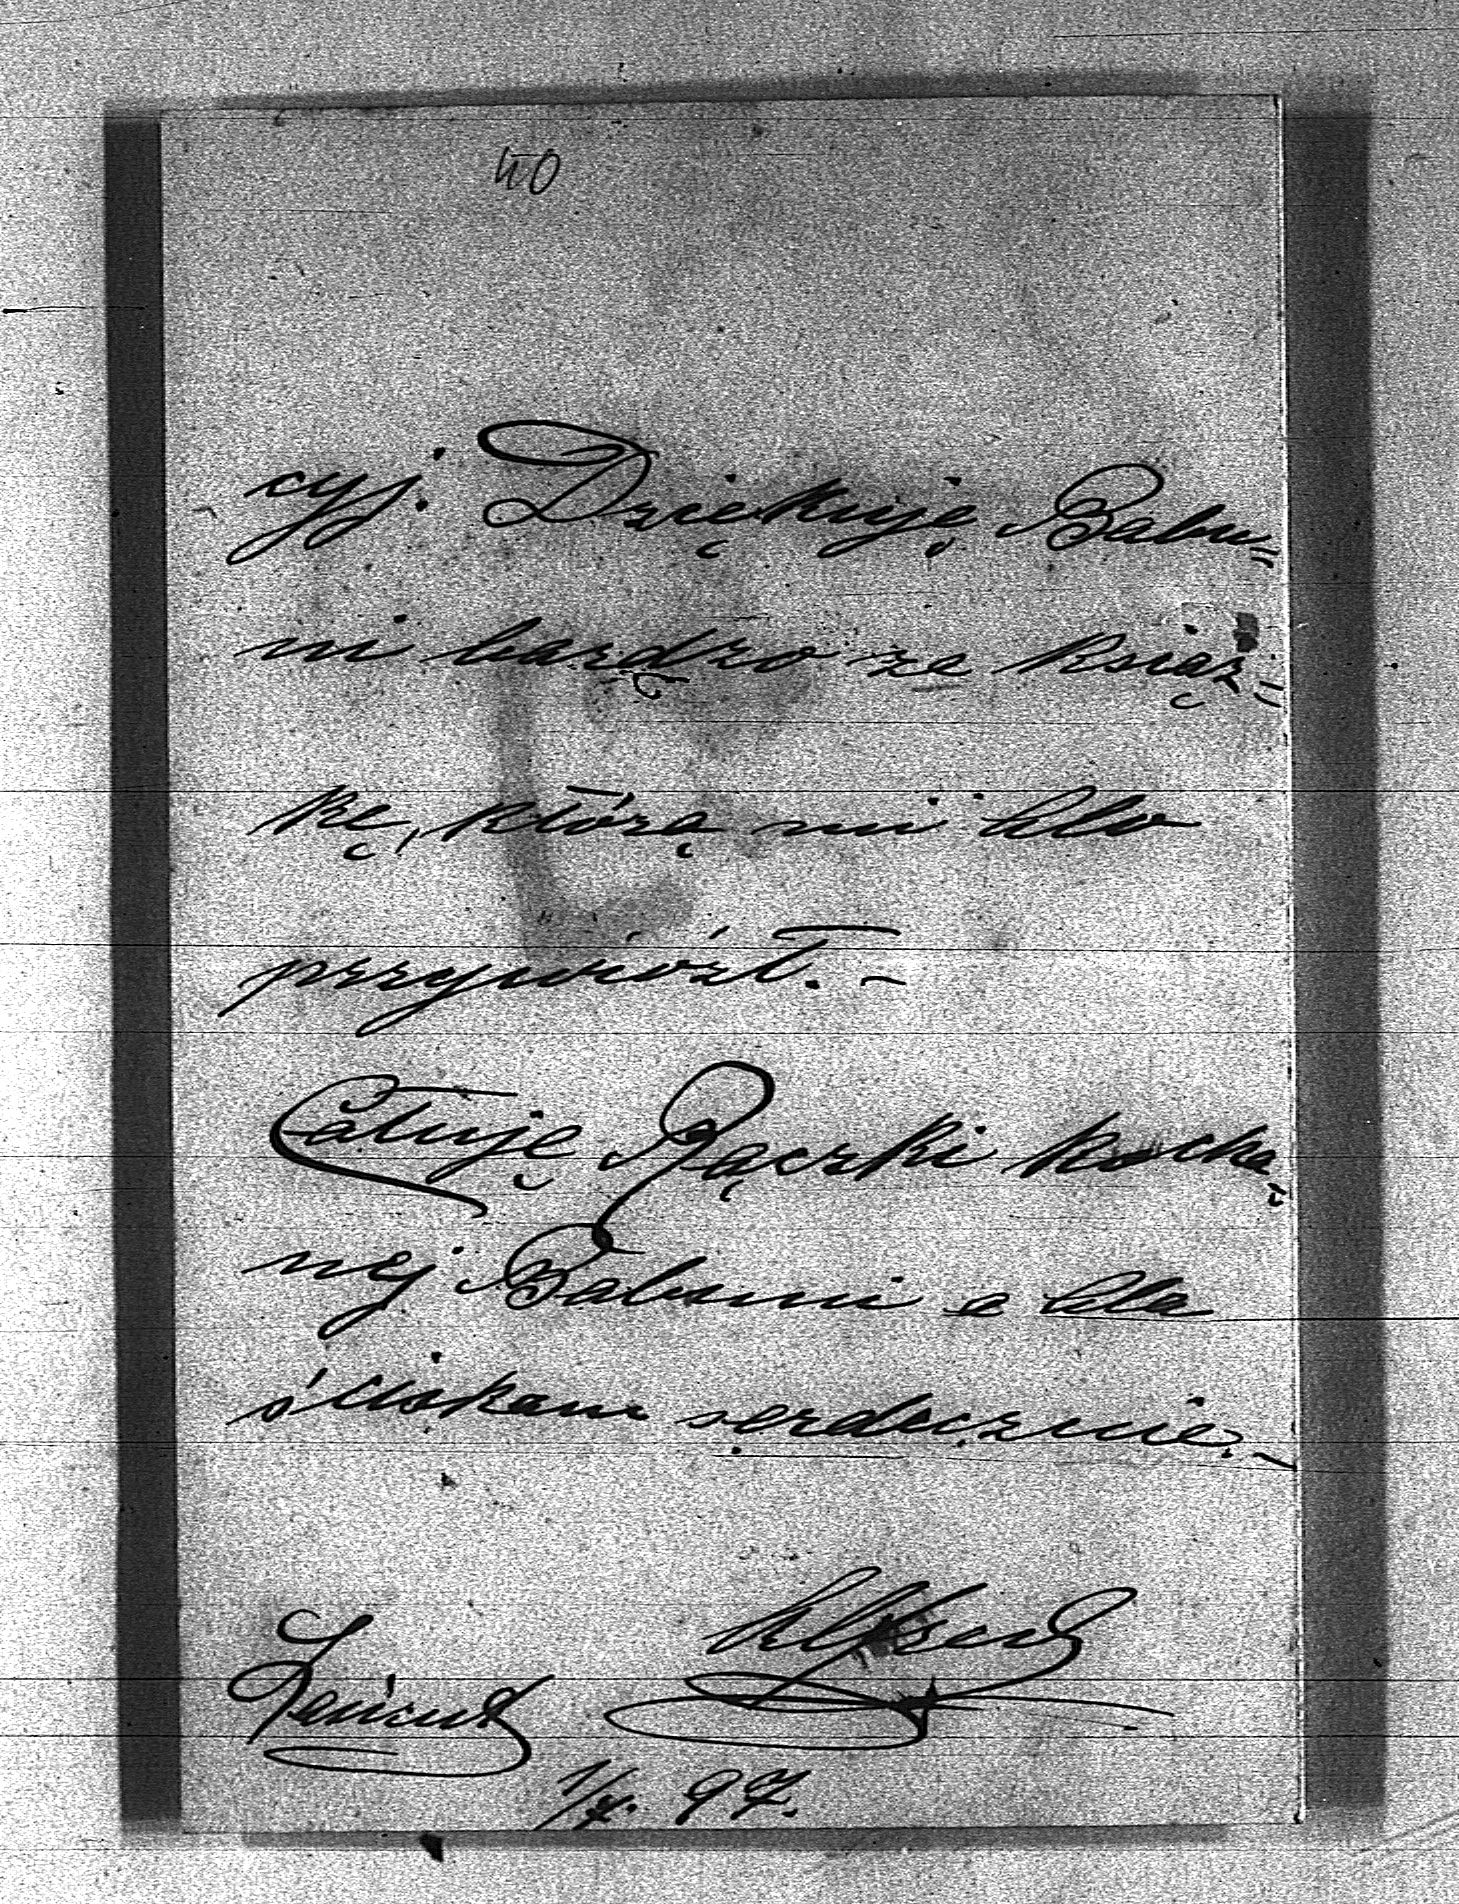 40
cyj. Dziękuję Babu=
ni bardzo za książ=
kę, którą mi
przywiózł. –
Całuję Rączki kocha
nej Babuni a
ściskam serdecznie. –
Alfred
Łańcut
1/7. 97.